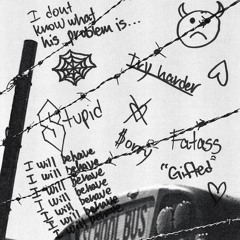 I dont
know what
his problem is...
Try harder
Stupid
$orry
Fatass
"Gifted"
I will behave
I will behave
I will behave
I will behave
I will behave
I will behave
I will behave
SCHOOL BUS